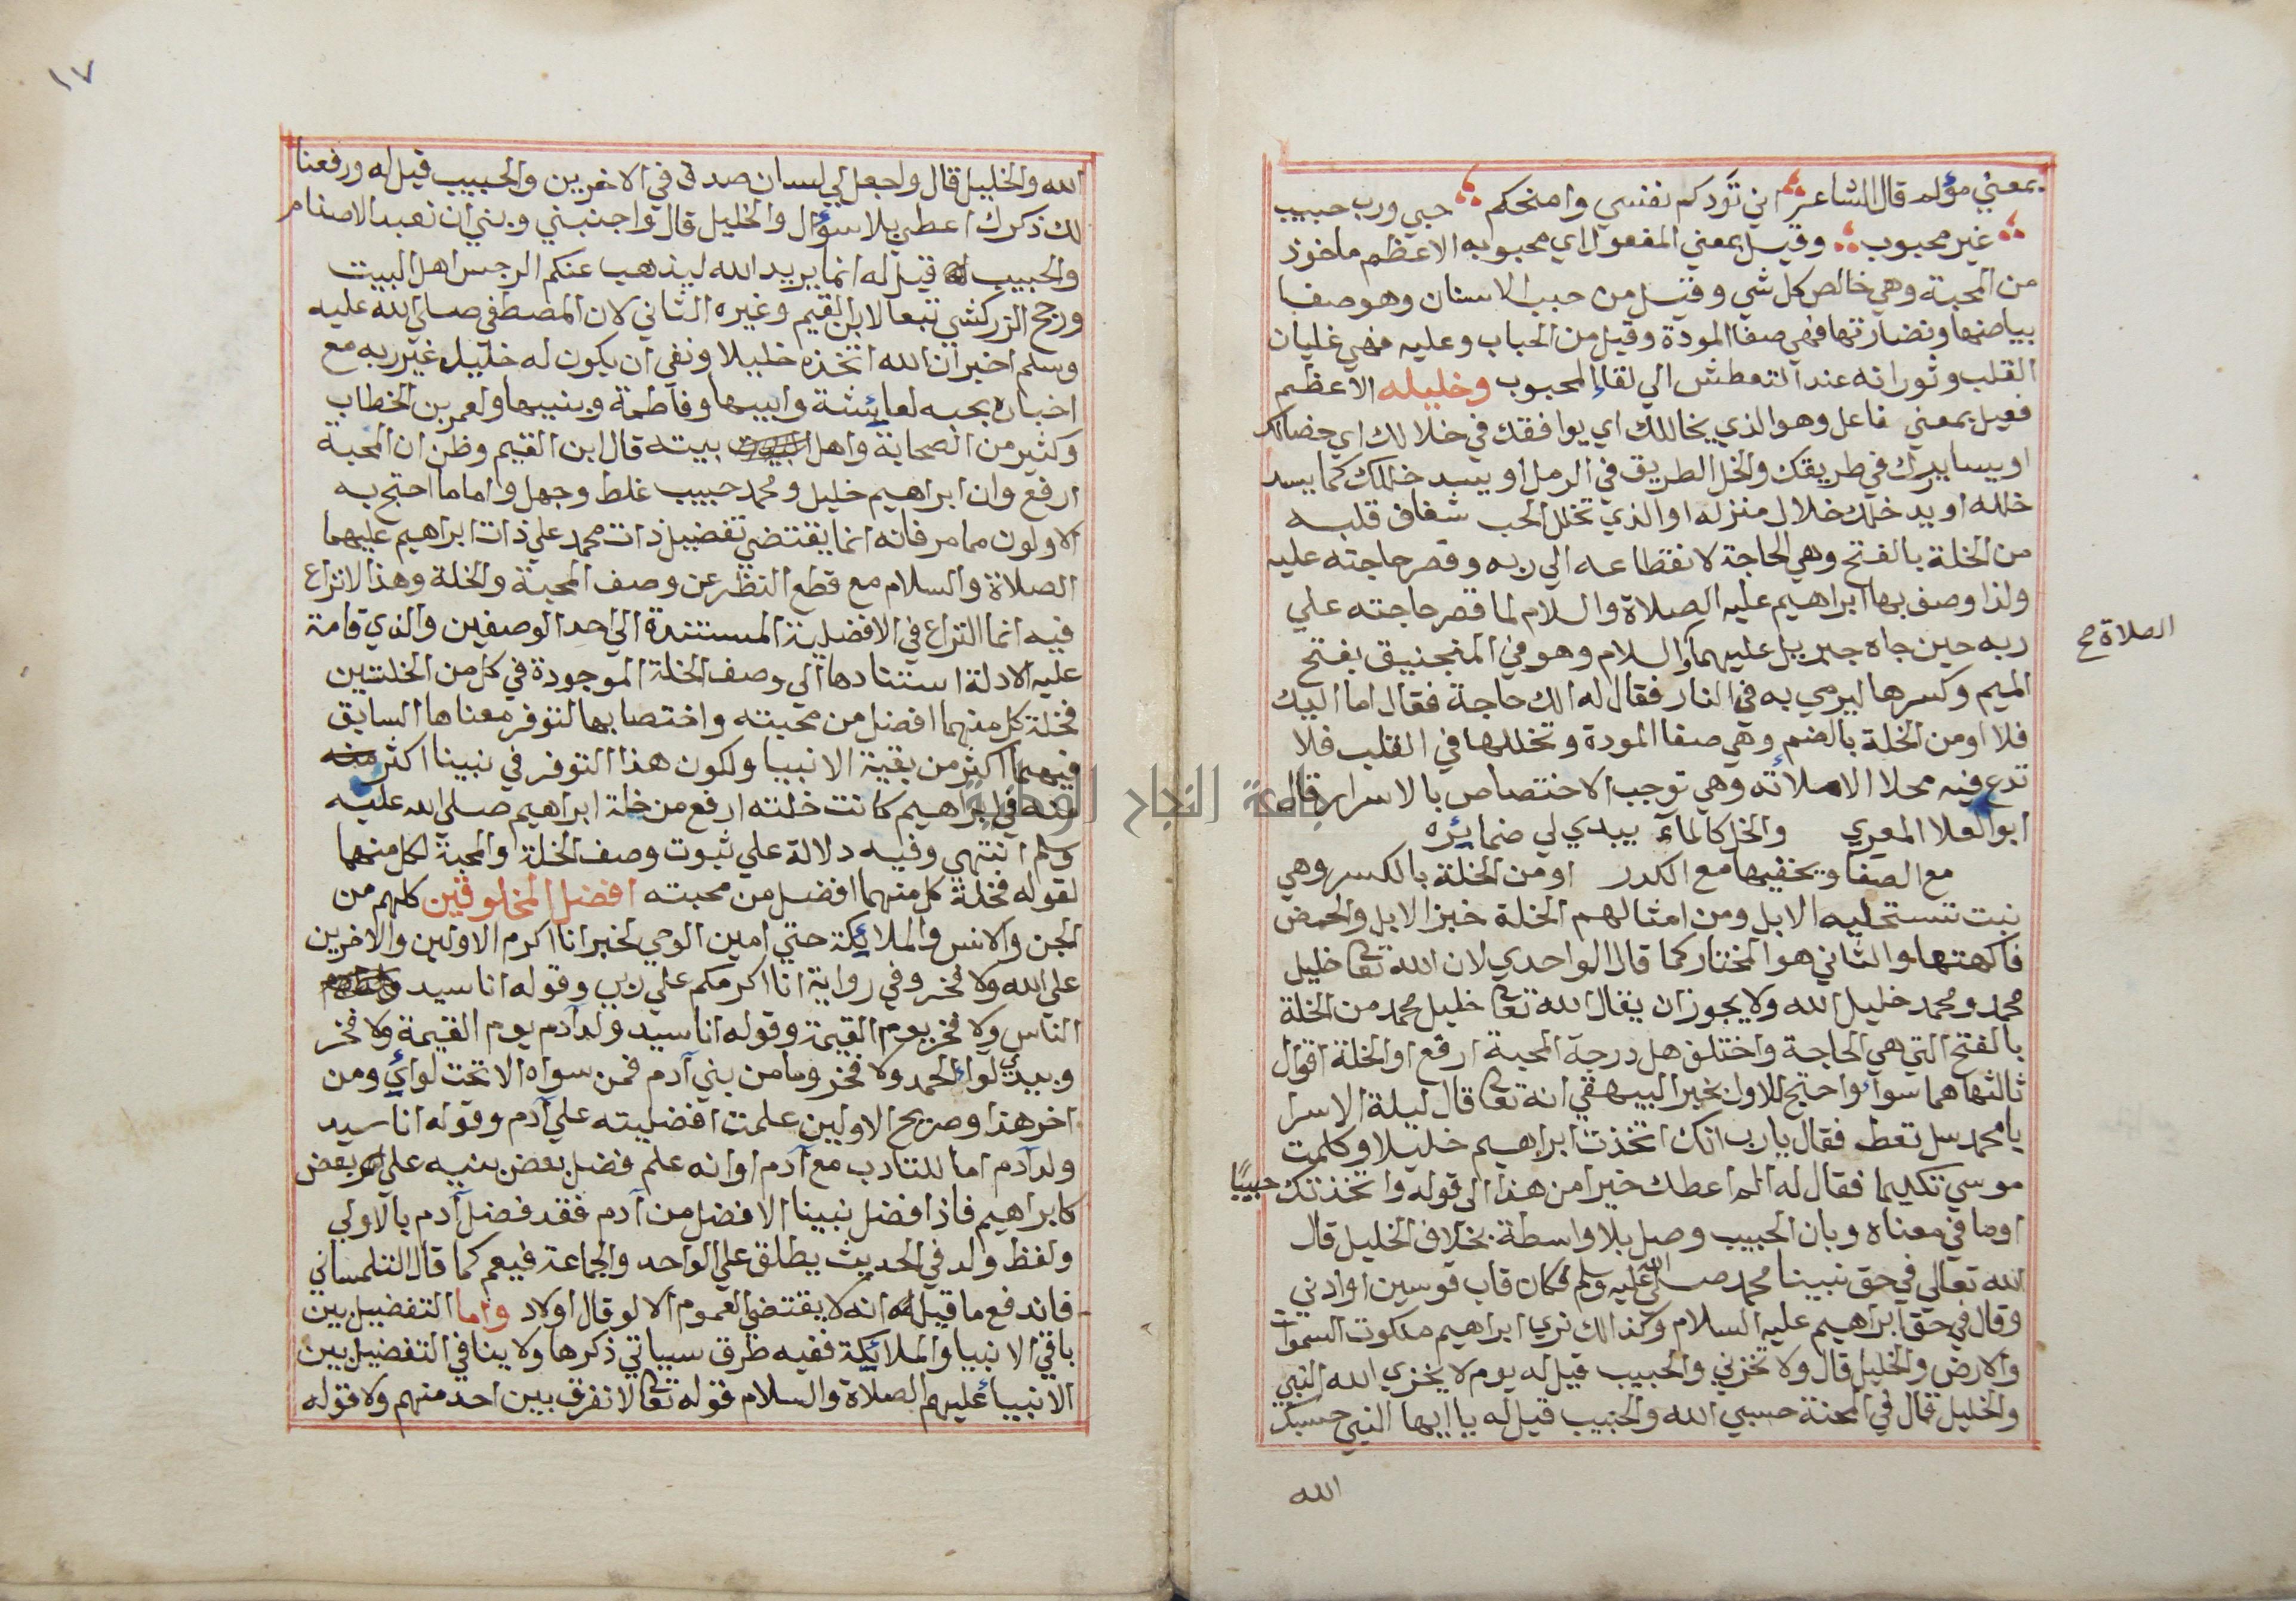 بمعني مؤلم قال الشاعر اني تودكم نفسي وامنحكم حبي ورب حبيب
غير محبوب وقيل بمعني المفعول اي محبوبه الاعظم ماخوذ
من المحبة وهي خالص كل شي وقيل من حبب الاسنان وهو صفا
بياضها ونضارتها فهي صفا المودة وقيل من الحباب وعليه فهي غليان
القلب وثورانه عند التعطش الي لقاء المحبوب وخليله الاعظم
فعيل بمعني فاعل وهو الذي يخاللك اي يوافقك في خلالك اي خصالك
او يسايرك في طريقك والخل الطريق في الرمل او يسد خللك كما يسد
خلله او يدخلك خلال منزله او الذي تخلل الحب شغاف قلبه
من الخلة بالفتح وهي الحاجة لانقطاعه الي ربه وقصر حاجته عليه
ولذا وصف بها ابراهيم عليه الصلاة والسلام لما قصر حاجته علي
ربه حين جاه جبريل عليهما والسلام وهو في المنجنيق بفتح
الصلاة صح
الميم وكسرها ليرمي به في النار فقال له الك حاجة فقال اما اليك
فلا او من الخلة بالضم وهي صفا المودة وتخللها في القلب فلا
تدع فيه محلا الا ملأته وهي توجب الاختصاص بالاسرار قال
ابو العلا المعري والخل كالمآء يبدي لي ضمائره
مع الصفا ويخفيها مع الكدر او من الخلة بالكسر وهي
نبت تستحليه الابل ومن امثالهم الخلة خبز الابل والحمض
فاكهتها والثاني هو المختار كما قال الواحدي لان الله تعا خليل
محمد ومحمد خليل الله ولا يجوز ان يقال الله تعا خليل محمد من الخلة
بالفتح التي هي الحاجة واختلف هل درجة المحبة ارفع او الخلة اقوال
ثالثها هما سواء واحتج للاول بخبر البيهقي انه تعا قال ليلة الاسرا
يا محمد سل تعط فقال يا رب انك اتخذت ابراهيم خليلا وكلمت
موسي تكليما فقال له الم اعطك خيرا من هذا الي قوله واتخذتك حبيبًا
او ما في معناه وبان الحبيب وصل بلا واسطة بخلاف الخليل قال
الله تعالي في حق نبينا محمد صلى الله عليه وسلم فكان قاب قوسين او ادني
وقال في حق ابراهيم عليه السلام وكذلك نري ابراهيم ملكوت السموات
والارض والخليل قال ولا تخزني والحبيب قيل له يوم لا يخزي الله النبي
والخليل قال في المحنة حسبي الله والحبيب قيل له يا ايها النبي حسبك
الله
١٧
الله والخليل قال واجعل لي لسان صدق في الاخرين والحبيب قيل له ورفعنا
لك ذكرك اعطي بلا سؤال والخليل قال واجنبني وبني ان نعبد الاصنام
والحبيب قيل له انما يريد الله ليذهب عنكم الرجس اهل البيت
ورجح الزركشي تبعا لابن القيم وغيره الثاني لان المصطفي صلي الله عليه
وسلم اخبر ان الله اتخذه خليلا ونفي ان يكون له خليله غير ربه مع
اخباره بحبه لعائشة وابيها وفاطمة وبنيها ولعمر بن الخطاب
وكثير من الصحابة واهل بيته قال ابن القيم وظن ان المحبة
ارفع وان ابراهيم خليل ومحمد حبيب غلط وجهل واما ما احتج به
الاولون مما مر فانه انما يقتضي تفضيل ذات محمد علي ذات ابراهيم عليهما
الصلاة والسلام مع قطع النظر عن وصف المحبة والخلة وهذا لا نزاع
فيه انما النزاع في الافضلية المستندة الي احد الوصفين والذي قامت
عليه الادلة استنادها الي وصف الخلة الموجودة في كل من الخلتين
فخلة كل منهما افضل من محبته واختصا بها لتوفر معناها السابق
فيهما اكثر من بقية الانبيا ولكون هذا التوفر في نبينا اكثر
منه في ابراهيم كانت خلته ارفع من خلة ابراهيم صلي الله عليه
وسلم انتهي وفيه دلالة علي ثبوت وصف الخلة والمحبة لكل منهما
لقوله فخلة كل منهما افضل من محبته افضل المخلوقين كلهم من
الجن والانس والملائكة حتي امين الوحي لخبر انا اكرم الاولين والاخرين
علي الله ولا فخر وفي رواية انا اكرمكم علي ربي وقوله انا سيد
الناس ولا فخر يوم القيمة وقوله انا سيد ولد آدم يوم القيمة ولا فخر
وبيدي لواء الحمد ولا فخر وما من بني آدم فمن سواه الا تحت لوائي ومن
اخر هذا وصريح الاولين علمت افضليته علي آدم وقوله انا سيد
ولد آدم اما للتادب مع آدم او انه علم فضل بعض بنيه علي بعض
كابراهيم فاذا فضل نبينا الافضل من آدم فقد فضل آدم بالاولي
ولفظ ولد في الحديث يطلق علي الواحد والجماعة فيعم كما قال التلمساني
فاندفع ما قيل انه لا يقتضي العموم الا لو قال اولاد واما التفضيل بين
باقي الانبيا والملائكة ففيه طرق سياتي ذكرها ولا ينافي التفضيل بين
الانبياء عليهم الصلاة والسلام قوله تعا لا نفرق بين احد منهم ولا قوله